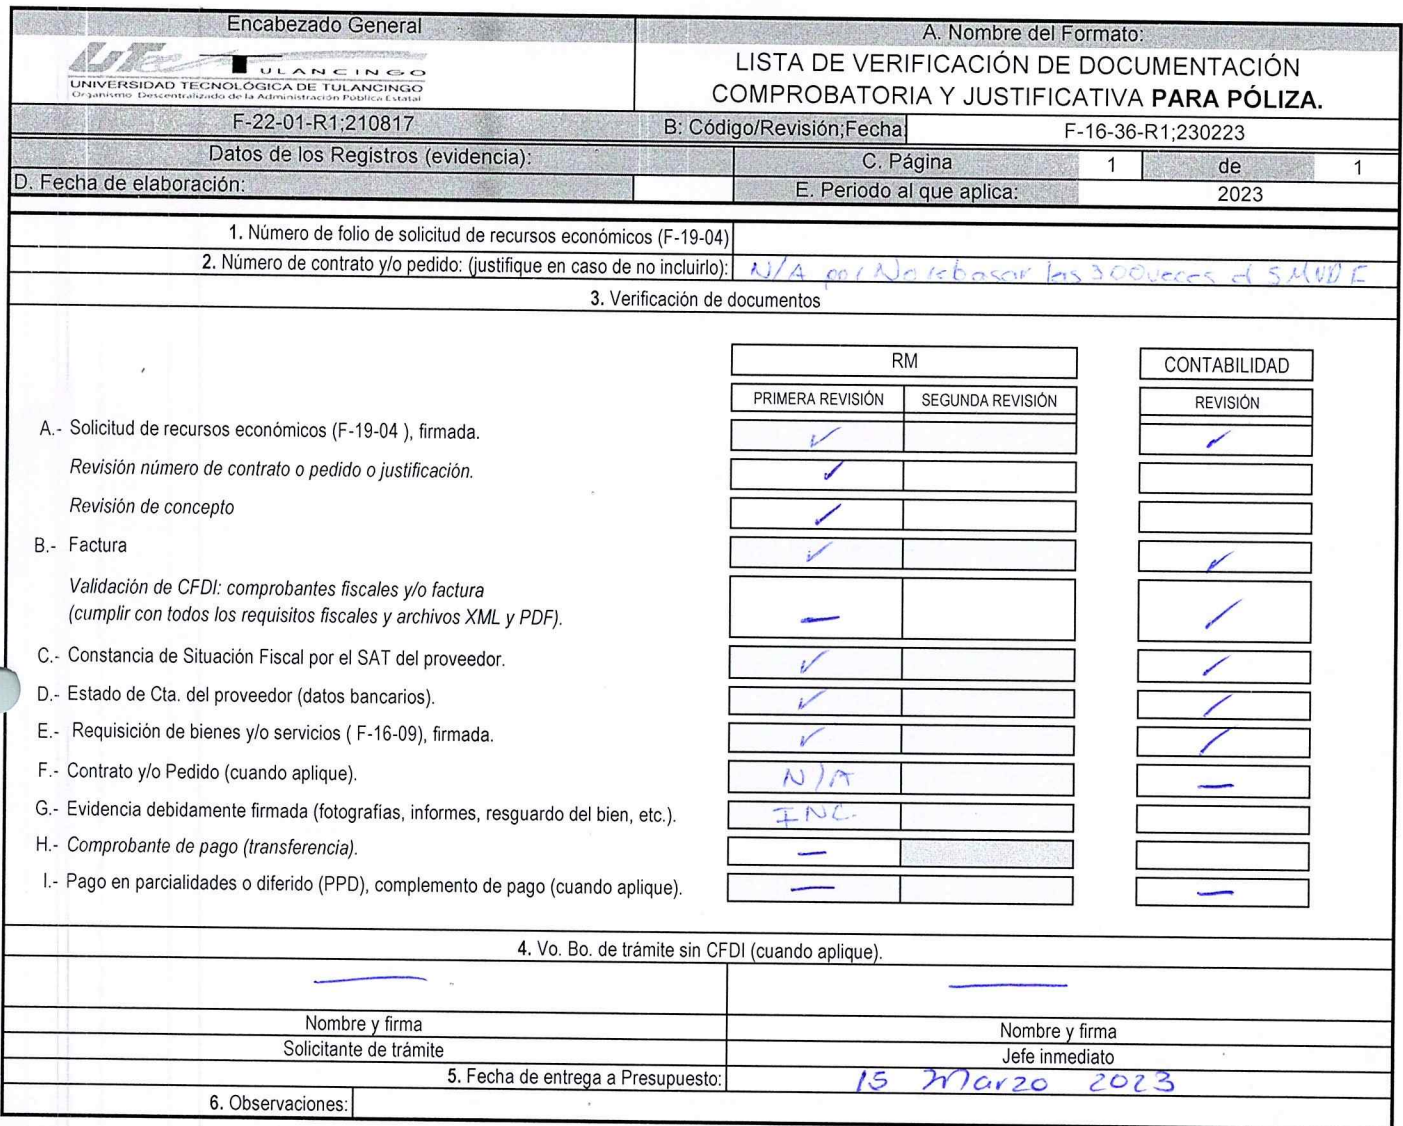 Encabezado General
A. Nombre del Formato:
UTec
TULANCINGO
UNIVERSIDAD TECNOLÓGICA DE TULANCINGO
Organismo Descentralizado de la Administración Pública Estatal
LISTA DE VERIFICACIÓN DE DOCUMENTACIÓN
COMPROBATORIA Y JUSTIFICATIVA PARA PÓLIZA.
F-22-01-R1;210817
B: Código/Revisión;Fecha
F-16-36-R1;230223
Datos de los Registros (evidencia):
C. Página 1 de 1
D. Fecha de elaboración:
E. Periodo al que aplica: 2023
1. Número de folio de solicitud de recursos económicos (F-19-04)
2. Número de contrato y/o pedido: (justifique en caso de no incluirlo): N/A por No rebasar las 300 veces el SMVDF
3. Verificación de documentos
RM
CONTABILIDAD
PRIMERA REVISIÓN
SEGUNDA REVISIÓN
REVISIÓN
A.- Solicitud de recursos económicos (F-19-04 ), firmada. ✓ ✓
Revisión número de contrato o pedido o justificación. ✓
Revisión de concepto ✓
B.- Factura ✓ ✓
Validación de CFDI: comprobantes fiscales y/o factura
(cumplir con todos los requisitos fiscales y archivos XML y PDF). — /
C.- Constancia de Situación Fiscal por el SAT del proveedor. ✓ /
D.- Estado de Cta. del proveedor (datos bancarios). ✓ /
E.- Requisición de bienes y/o servicios ( F-16-09), firmada. ✓ /
F.- Contrato y/o Pedido (cuando aplique). N/A —
G.- Evidencia debidamente firmada (fotografías, informes, resguardo del bien, etc.). INC.
H.- Comprobante de pago (transferencia). —
I.- Pago en parcialidades o diferido (PPD), complemento de pago (cuando aplique). — —
4. Vo. Bo. de trámite sin CFDI (cuando aplique).
— —
Nombre y firma
Nombre y firma
Solicitante de trámite
Jefe inmediato
5. Fecha de entrega a Presupuesto: 15 Marzo 2023
6. Observaciones: